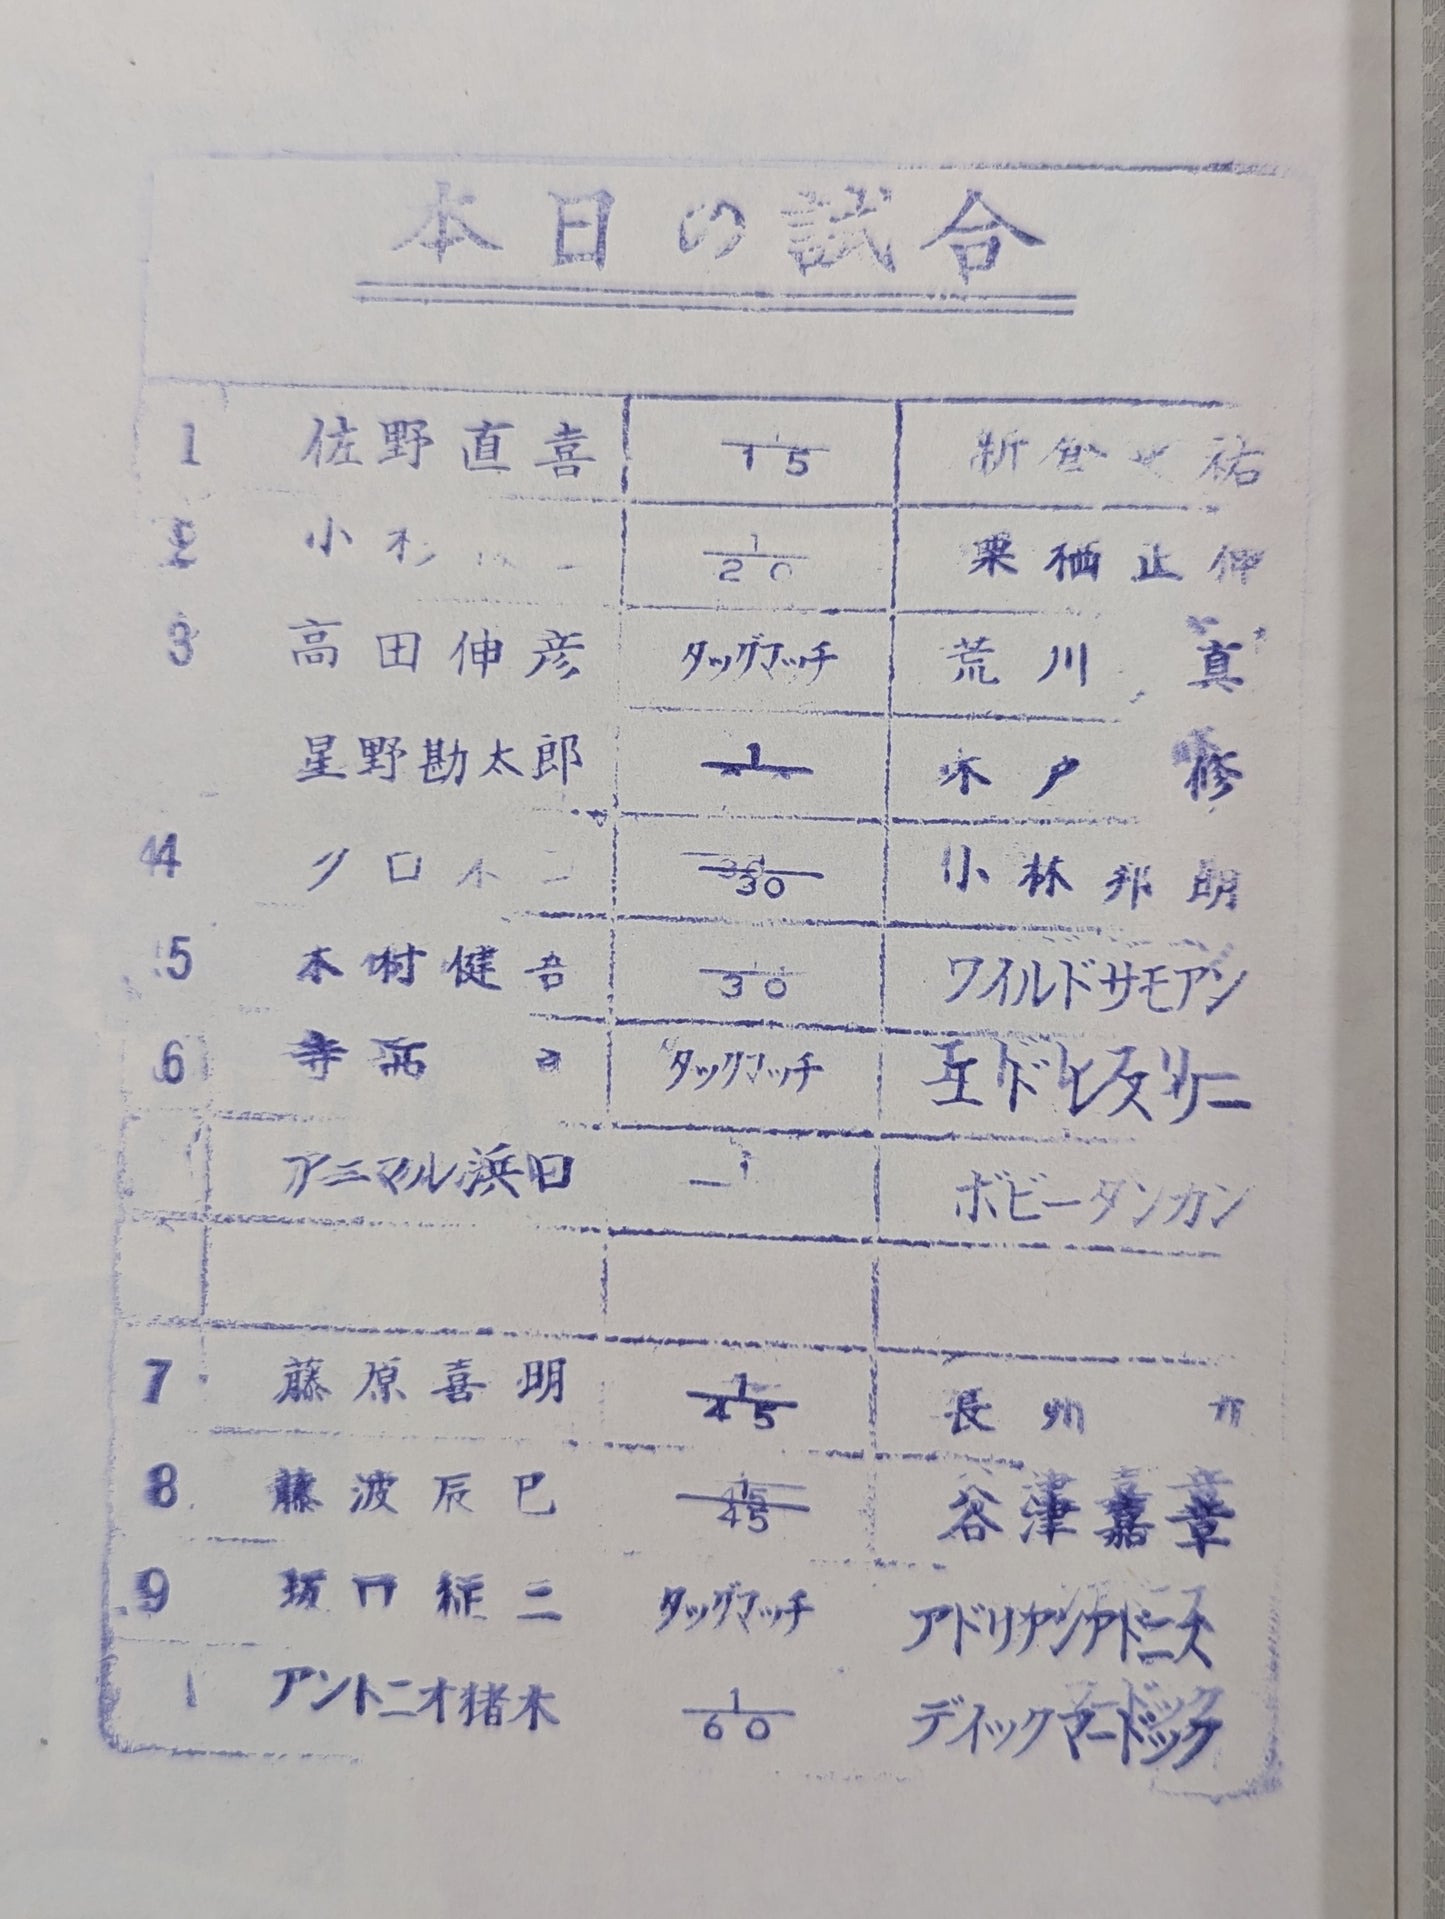 本日の試合
1 佐野直喜 1/15 祐
2 小杉 1/20 栗栖正伸
3 高田伸彦 タッグマッチ 荒川 真
星野勘太郎 1 木戸 修
4 クロネコ 30 小林邦明
5 木村健吾 1/30 ワイルドサモアン
6 寺西 タッグマッチ エドレスリー
アニマル浜口 1 ボビーダンカン
7 藤原喜明 1/45 長州
8 藤波辰巳 1/45 谷津嘉章
9 坂口征二 タッグマッチ アドリアンアドニス
アントニオ猪木 1/60 デイックマードック